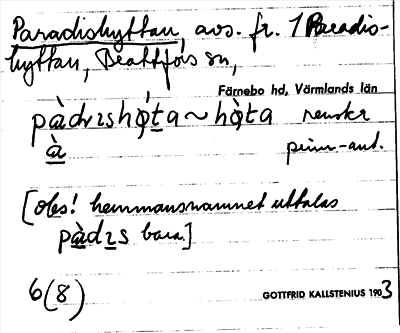 Paradishyttan, avs. fr. 1 Paradis-
hyttan, Brattfors sn,
Färnebo hd, Värmlands län
pàdɩshø̀ta ~ hø̀ta
à
[obs! hemmansnamnet uttalas
pàdɩs bara]
6(8)
GOTTFRID KALLSTENIUS 1903